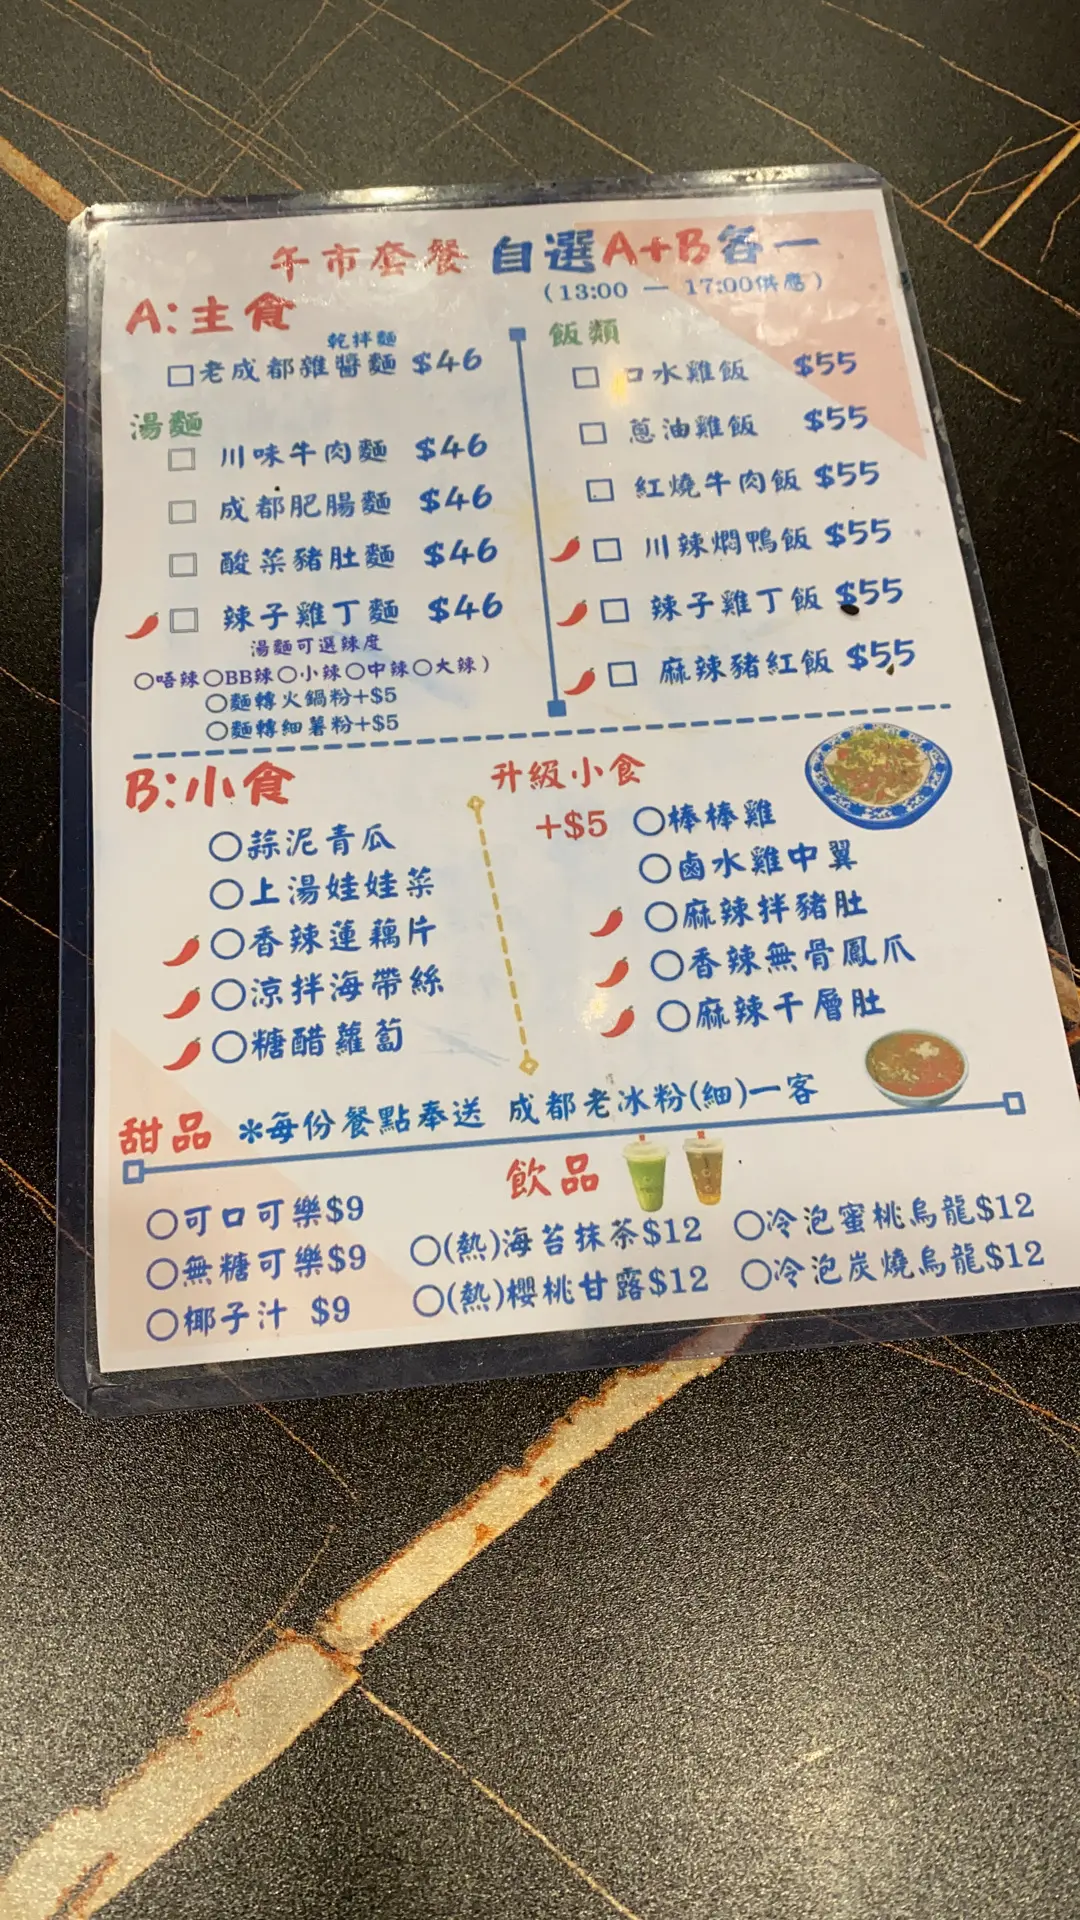 午市套餐 自選A+B各一
(13:00 — 17:00供應)
A:主食
乾拌麵
□老成都雜醬麵 $46
湯麵
□ 川味牛肉麵 $46
□ 成都肥腸麵 $46
□ 酸菜豬肚麵 $46
□ 辣子雞丁麵 $46
湯麵可選辣度
○唔辣○BB辣○小辣○中辣○大辣)
○麵轉火鍋粉+$5
○麵轉細薯粉+$5
飯類
□ 口水雞飯 $55
□ 蔥油雞飯 $55
□ 紅燒牛肉飯 $55
□ 川辣燜鴨飯 $55
□ 辣子雞丁飯 $55
□ 麻辣豬紅飯 $55
B:小食
○蒜泥青瓜
○上湯娃娃菜
○香辣蓮藕片
○涼拌海帶絲
○糖醋蘿蔔
升級小食
+$5 ○棒棒雞
○鹵水雞中翼
○麻辣拌豬肚
○香辣無骨鳳爪
○麻辣千層肚
甜品 *每份餐點奉送 成都老冰粉(細)一客
飲品
○可口可樂$9
○無糖可樂$9
○椰子汁 $9
○(熱)海苔抹茶$12
○(熱)櫻桃甘露$12
○冷泡蜜桃烏龍$12
○冷泡炭燒烏龍$12